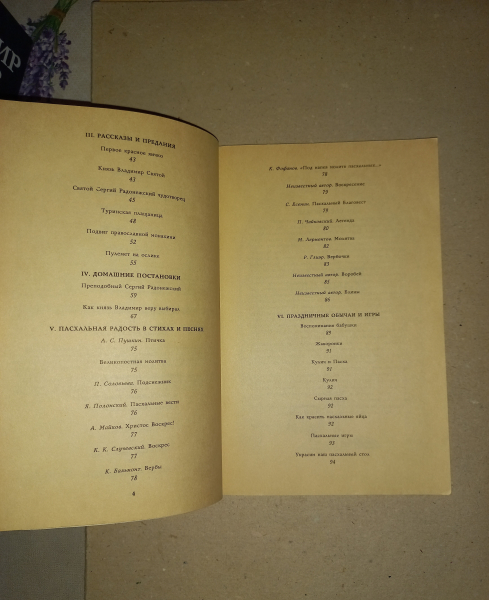 ИР
III. РАССКАЗЫ И ПРЕДАНИЯ
Первое красное яичко
43
Князь Владимир Святой
43
Святой Сергий Радонежский чудотворец
45
Туринская плащаница
48
Подвиг православной монахини
52
Пуленет на ослике
55
IV. ДОМАШНИЕ ПОСТАНОВКИ
Преподобный Сергий Радонежский
59
Как князь Владимир веру выбирал
67
V. ПАСХАЛЬНАЯ РАДОСТЬ В СТИХАХ И ПЕСНЯХ
А. С. Пушкин. Птичка
75
Великопостная молитва
75
П. Соловьева. Подснежник
76
Я. Полонский. Пасхальные вести
76
А. Майков. Христос Воскрес!
77
К. К. Случевский. Воскрес
77
К. Бальмонт. Вербы
78
4
К. Фофанов «Под напев молитв пасхальных...»
78
Неизвестный автор. Воскресение
79
С. Есенин. Пасхальный благовест
79
П. Чайковский. Легенда
80
М. Лермонтов. Молитва
82
Р. Глиэр. Вербочки
83
Неизвестный автор. Воробей
85
Неизвестный автор.
86
VI. ПРАЗДНИЧНЫЕ ОБЫЧАИ И ИГРЫ
Воспоминания бабушки
89
Жаворонки
91
Кулич и Пасха
91
Кулич
92
Сырная пасха
92
Как красить пасхальные яйца
92
Пасхальные игры
93
Украсим наш пасхальный стол
94